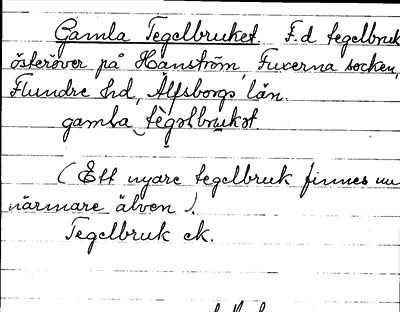 Gamla Tegelbruket. F.d tegelbruk
österöver på Hanström, Fuxerna socken,
Flundre hd, Älfsborgs län.
gamla tègəlbrukət.
(Ett nyare tegelbruk finnes nu
närmare älven).
Tegelbruk ek.